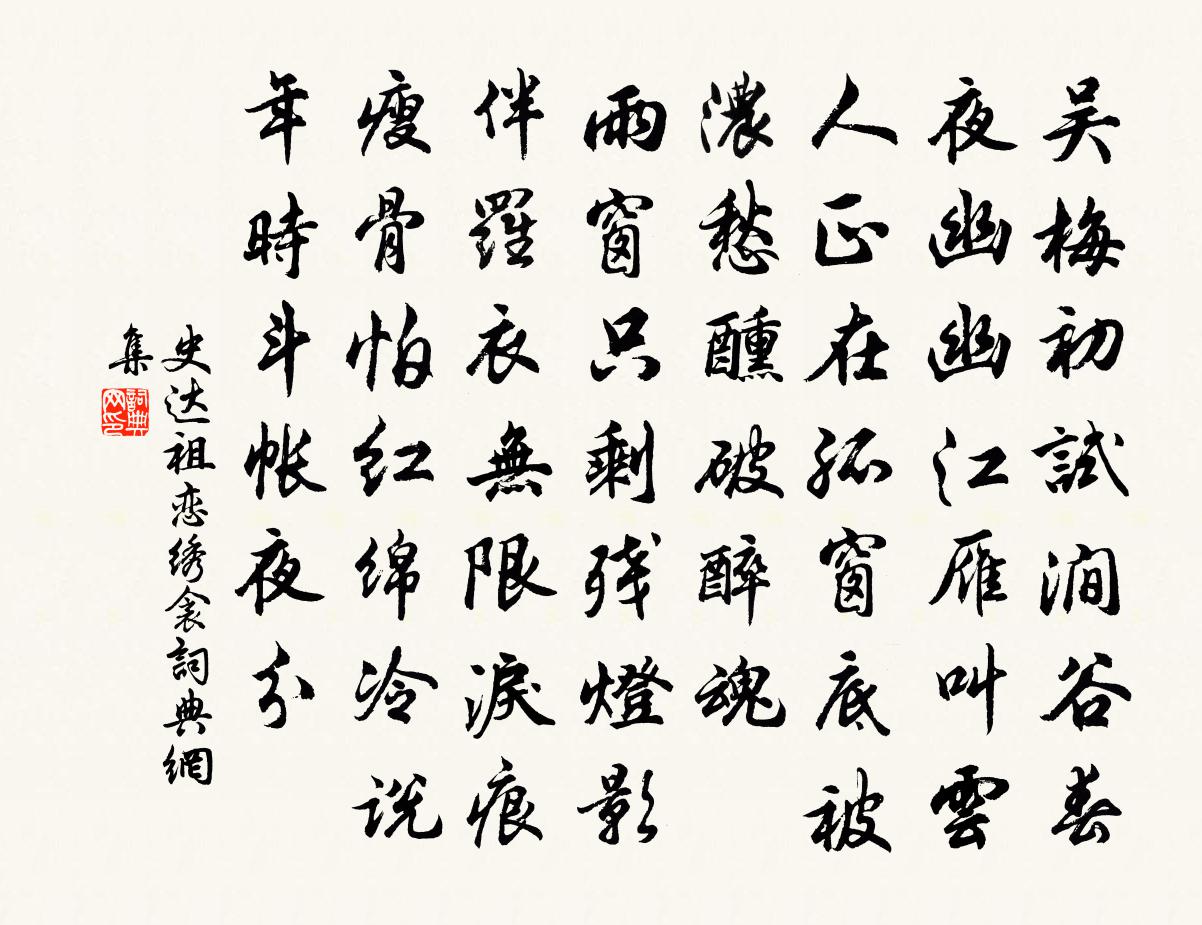 吴梅初試澗谷春
夜幽幽江雁叫雲
人正在孤窗底被
濃愁醺破醉魂
雨窗只剩残燈影
伴羅衣無限淚痕
瘦骨怕红绵冷说
年時斗帐夜分
史达祖恋绣衾詞典網
集
詞典
网印